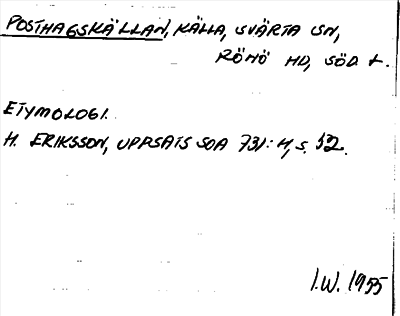 POSTHAGSKÄLLAN, KÄLLA, SVÄRTA SN,
RÖNÖ HD, SÖD L.
ETYMOLOGI.
H. ERIKSSON, UPPSATS SOA 731: H, S. 52.
I.W. 1955